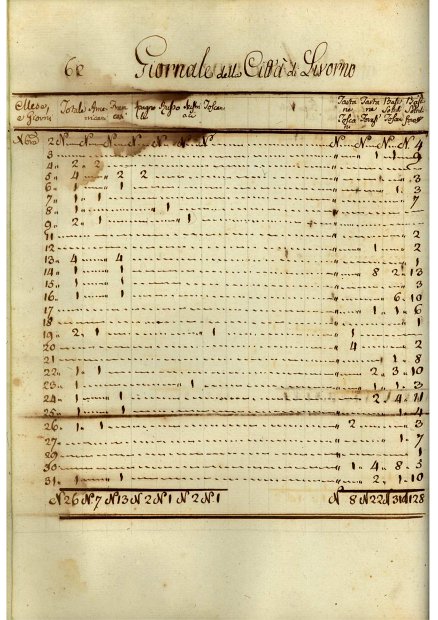 62 Giornale della Città di Livorno
Mese, e Giorni Totale Ame- ricani Fran- cesi Russo Toscan
2 N N N N N N N N N N N 4
3 1 1 9
4 2 2
5 4 2 2 3
6 1 3
7 1 1 7
8 1 1
9 2 1 1
11 2
12 1 2
13 4 4 1
14 1 1 8 2 13
15 1 1 3
16 1 1 6 10
17 1 1 6
18 1
19 2 1 1 1
20 4 2
21 1 8
22 1 1 2 3 10
23 1 1 1 1 3
24 1 1 2 4 11
25 1 1 1 4
26 1 1 2 3
27 1 7
29 1
30 1 4 8 5
31 1 1 2 1 10
N 26 N 7 N 13 N 2 N 1 N 2 N 1 N 8 N 22 N 31 N 128